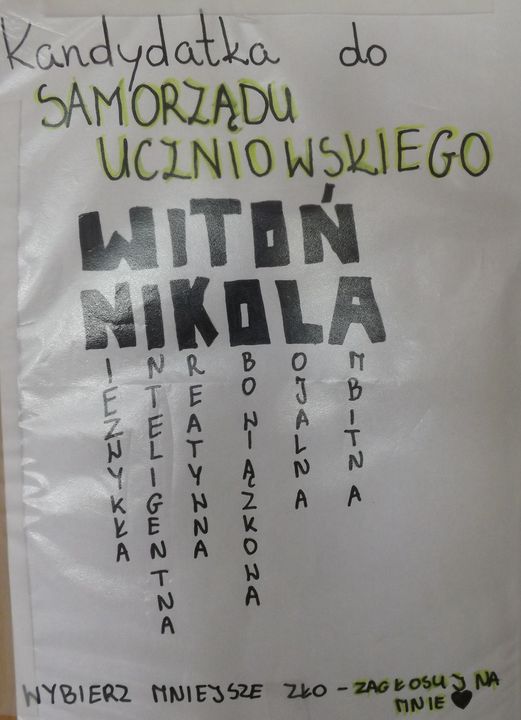 Kandydatka do
SAMORZĄDU
UCZNIOWSKIEGO
WITOŃ
NIKOLA
IEZWYKŁA
NTELIGENTNA
REATYWNA
BOWIĄZKOWA
OJALNA
MBITNA
WYBIERZ MNIEJSZE ZŁO - ZAGŁOSUJ NA
MNIE ♥